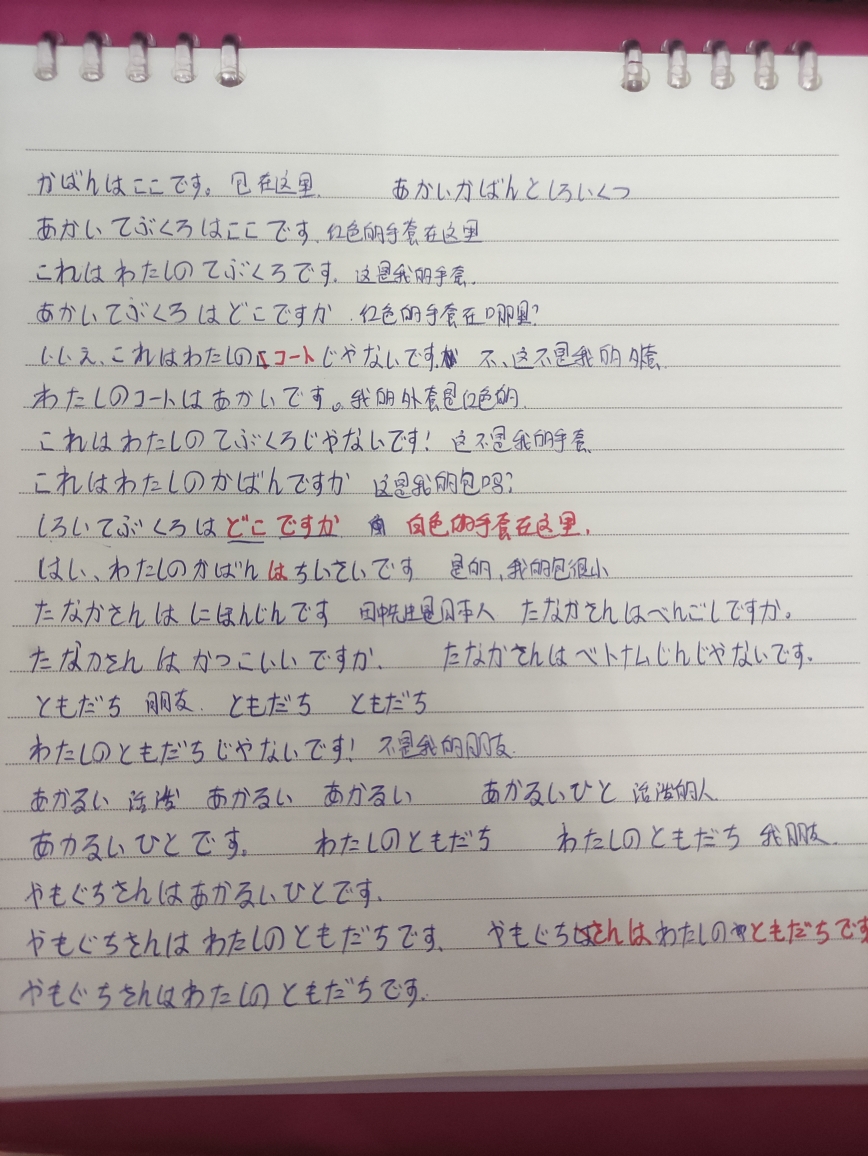 かばんはここです。包在这里. あかいかばんとしろいくつ
あかいてぶくろはここです.红色的手套在这里
これはわたしのてぶくろです. 这是我的手套.
あかいてぶくろはどこですか.红色的手套在哪里?
いいえ、これはわたしのコートじゃないです. 不、这不是我的外套.
わたしのコートはあかいです。我的外套是红色的.
これはわたしのてぶくろじゃないです! 这不是我的手套
これはわたしのかばんですか 这是我的包吗?
しろいてぶくろはどこですか 白色的手套在这里.
はい、わたしのかばんはちいさいです 是的,我的包很小
たなかさんはにほんじんです 田中先生是日本人 たなかさんはべんごしですか。
たなかさんはかっこいいですか. たなかさんはベトナムじんじゃないです.
ともだち 朋友. ともだち ともだち
わたしのともだちじゃないです! 不是我的朋友.
あかるい 活泼 あかるい あかるい あかるいひと 活泼的人.
あかるいひとです. わたしのともだち わたしのともだち 我朋友.
やもぐちさんはあかるいひとです.
やもぐちさんはわたしのともだちです. やもぐちさんはわたしのともだちです
やもぐちさんはわたしのともだちです.